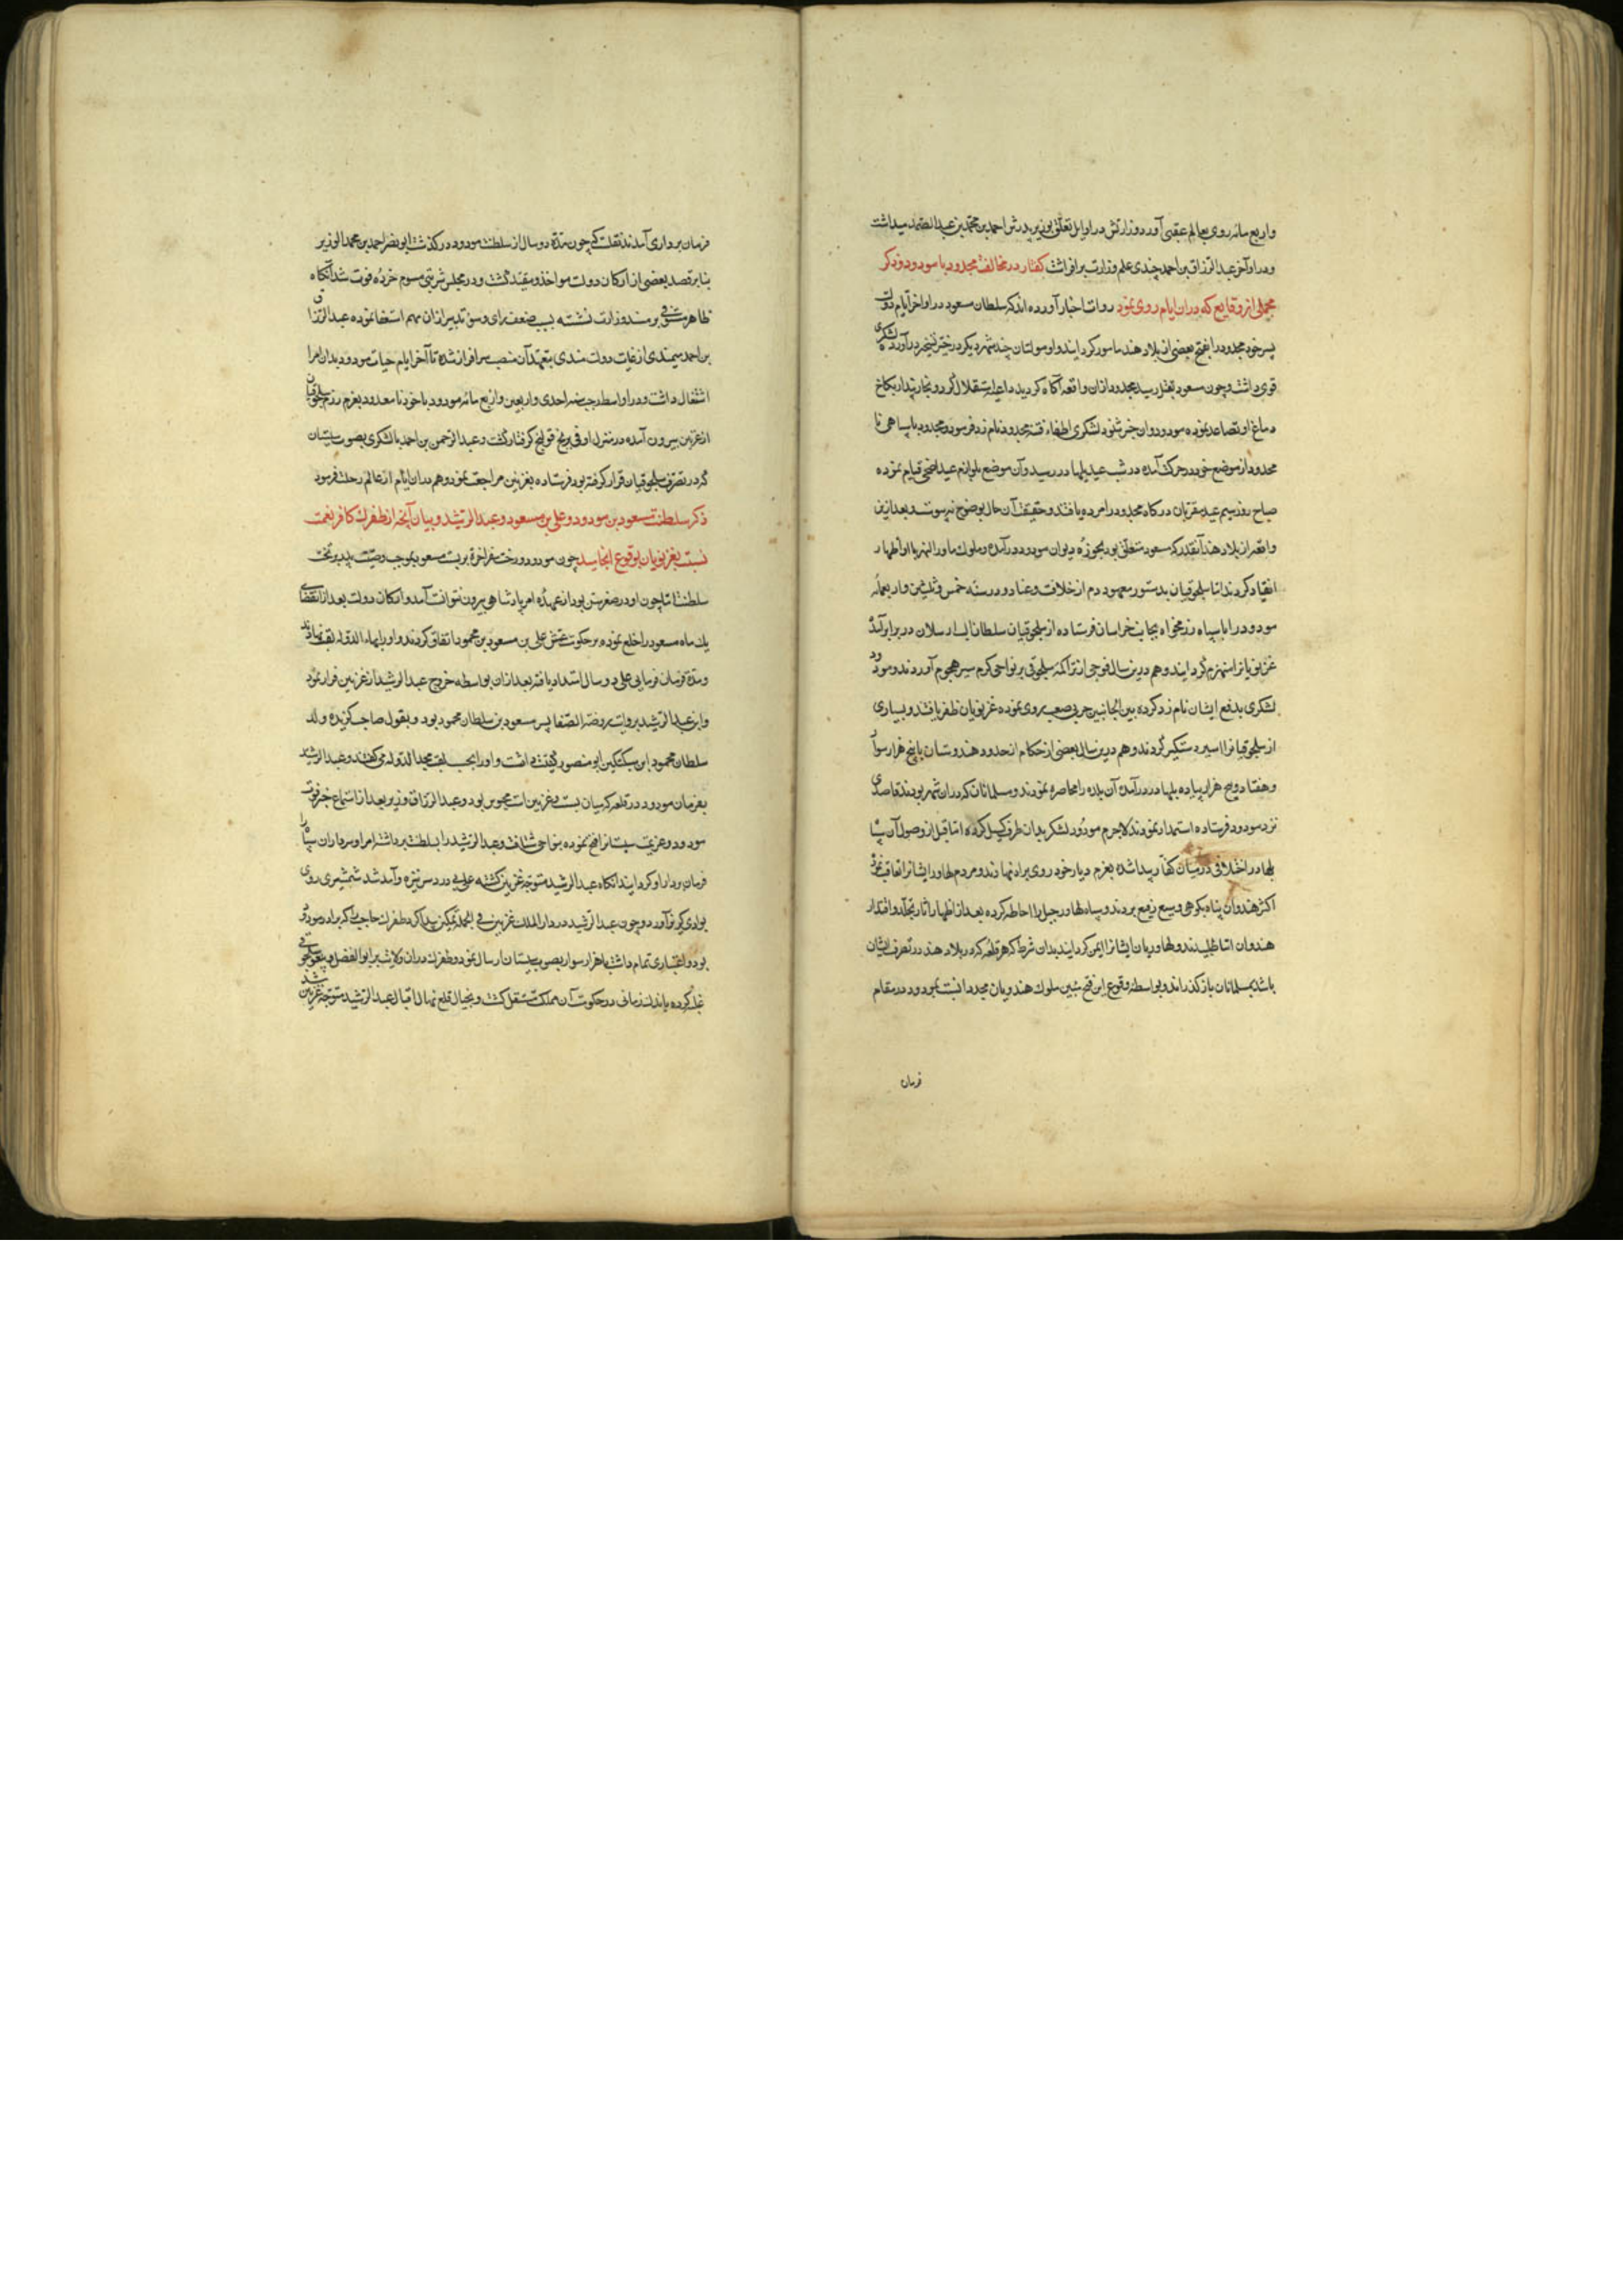 واربع مائه روی بعالم عقبی آورد و وزارتش در اوایل تعلق بوزیر پدرش احمد بن محمد بن عبدالصمد میداشت
و در اواخر عبدالرزاق بن احمد چندی علم وزارت برافراشت کفتار در مخالفت مجدود با مودود و ذکر
مجملی از وقایع که دران ایام روی نمود روات اخبار آورده اند که سلطان مسعود در اواخر ایام دولت
پسر خود مجدود را بفتح بعضی از بلاد هند مامور کردانید و او مولتان و چند شهر دیکر در حیز تسخیر درآورد لشکری
قوی داشت و چون مسعود بقتل رسید مجدود ازان واقعه آکاه کردید داعیه استقلال کرد و بخار پندار بکاخ
دماغ او تصاعد نموده مودود این خبر شنود لشکری اطفاء فتنه مجدود نامزد فرمود و مجدود با سپاهی نا
محدود از موضع خود در حرکت آمده در شب عید بلهاور رسید و آن موضع بلوازم عید اضحی قیام نموده
صباح روز سیم عید قربان در کاه مجدود را مرده یافتند و حقیقت آن حال بوضوح نپیوست و بعد ازین
واقعه از بلاد هند آنقدر که بمسعود متعلق بود بحوزه دیوان مودود درآمده و ملوک ماوراءالنهر با او اظهار
انقیاد کردند اما سلجوقیان بدستور معهود دم از خلافت و عناد و در سنه خمس و ثلثین واربعمائه
مودود را با سپاه رزمخواه بجانب خراسان فرستاده از سلجوقیان سلطان الب ارسلان در برابر آمد
غزنویانرا منهزم کردانید و هم درین سال فوجی از تراکمه سلجوقی بر نواحی کرم سیر هجوم آوردند و مودود
لشکری بدفع ایشان نامزد کرده بین الجانبین حربی صعب روی نموده غزنویان ظفر یافتند و بسیاری
از سلجوقیانرا اسیر و دستکیر کردند و هم درین سال بعضی از حکام از حدود هندوستان با پنج هزار سوار
و هفتاد و پنج هزار پیاده بلهاور درآمده آن بلده را محاصره نمودند و مسلمانان که دران شهر بودند قاصدی
نزد مودود فرستاده استمداد نمودند لاجرم مودود لشکر بدان طرف کسیل کرده اما قبل از وصول آن سپاه
بلهاور اختلافی در میان کفار پیدا شده بعزم دیار خود روی براه نهادند و مردم لهاور ایشانرا تعاقب نمود
اکثر هندوان پناه بکوهی وسیع رفیع بردند و سپاه لهاور جبل را احاطه کرده بعد از اظهار آثار تجلد و اقتدار
هندوان امان طلبیدند و لهاوریان ایشانرا ایمن کردانیدند بدان شرط که هر قلعه که در بلاد هند در تصرف ایشان
باشد بمسلمانان باز کذراند و بواسطه وقوع این فتح مبین ملوک هندویان مجددا نسبت بمودود در مقام
فرمان
فرمان برداری آمدند نقلست که چون مدة دو سال از سلطنت مودود در کذشت ابو نصر احمد بن محمد الوزیر
بنا بر قصد بعضی از ارکان دولت مواخذ و مقید کشت و در مجلس شربتی مسموم خرده فوت شد آنکاه
طاهر مستوفی بر مسند وزارت نشسته بسبب ضعف رای و سوء تدبیر ازان مهم استعفا نموده عبدالرزاق
بن احمد میمندی از غایت دولت مندی بتعهد آن منصب سرافراز شده تا آخر ایام حیات مودود بدان امر
اشتغال داشت و در اواسط رجب سنه احدی واربعین واربع مائه مودود با خود نامعدود بعزم رزم سلجوقیان
از غزنین بیرون آمده در منزل اول برنج قولنج کرفتار کشت و عبدالرحمن بن احمد با لشکری بصوب سیستان
که در تصرف سلجوقیان قرار کرفته بود فرستاده بغزنین مراجعت نمود و هم دران ایام از عالم رحلت فرمود
ذکر سلطنت مسعود بن مودود و علی بن مسعود و عبدالرشید و بیان آنچه از طغرل کافر نعمت
نسبت بغزنویان بوقوع انجامید چون مودود رخت سفر اخرة بر بست مسعود بموجب وصیت پدر بر تخت
سلطنت اما چون او در صغر سن بود از عهده امر پادشاهی بیرون نتوانست آمد و ارکان دولت بعد از انقضای
یک ماه مسعود را خلع نموده بر حکومت عمش علی بن مسعود بن محمود اتفاق کردند و او را بهاء الدوله لقب نهادند
و مدة فرمان فرمایی علی دو سال امتداد یافته بعد ازان بواسطه خروج عبدالرشید از غزنین فرار نمود
و این عبدالرشید بروایت روضة الصفا پسر مسعود بن سلطان محمود بود و بقول صاحب کزیده ولد
سلطان محمود ابن سبکتکین ابو منصور کنیت داشت و او را بحسب لقب مجد الدوله می کفتند و عبدالرشید
بفرمان مودود در قلعه که میان بست و غزنین است محبوس بود و عبدالرزاق وزیر بعد از استماع خبر فوت
مودود و عزیمت سیستانرا فسخ نموده بنواحی شتافت و عبدالرشید را بسلطنت برداشته امرا و سرداران سپاه را
فرمان بردار او کردانید آنکاه عبدالرشید متوجه غزنین کشته علی بی دردسر نیزه و آمد شد شمشیری روی
بوادی کریز آورد و چون عبدالرشید در دار الملک غزنین فی الجمله تمکین پیدا کرد طغرل حاجب را که برادر مودود
بود و اعتباری تمام داشت با هزار سوار بصوب سیستان ارسال نمود و طغرل دران ولایت بر ابو الفضل و بیغو سلجوقی
غلبه کرده باندک زمانی در حکومت آن مملکت مستقل کشت و بخیال قلع نهال اقبال عبدالرشید متوجه غزنین شد